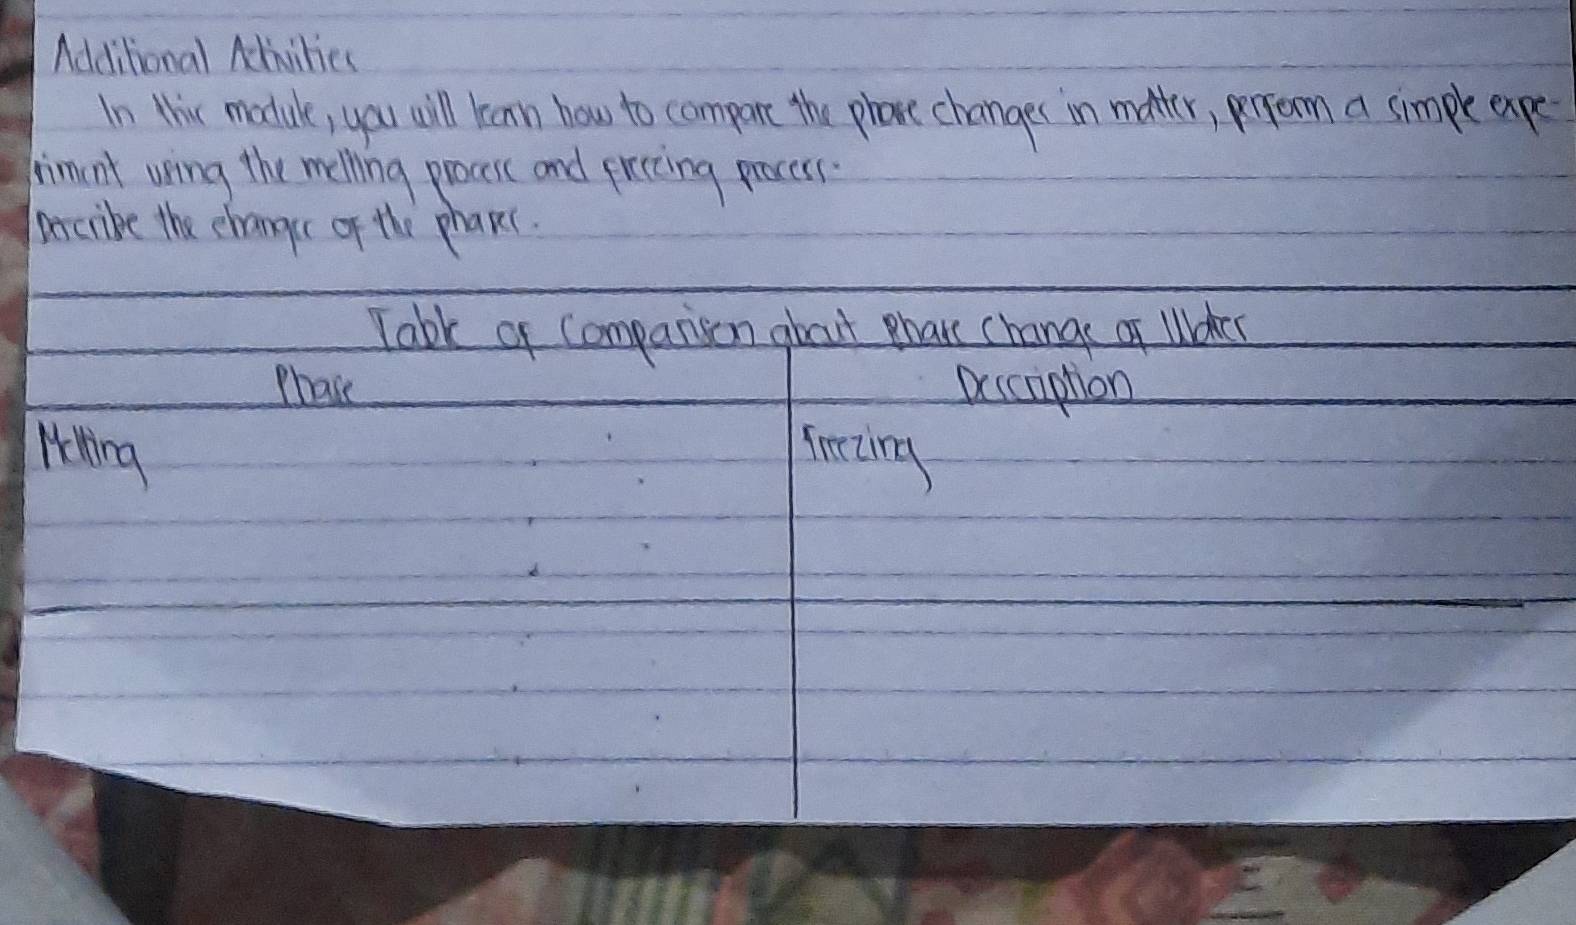 Additional Activities
In this module, you will learn how to compare the phase changes in matter, perform a simple expe-
riment using the melting process and freezing process.
Describe the changes of the phases.
Table of Comparison about Phase Change of Water
Phase Description
Melting Freezing